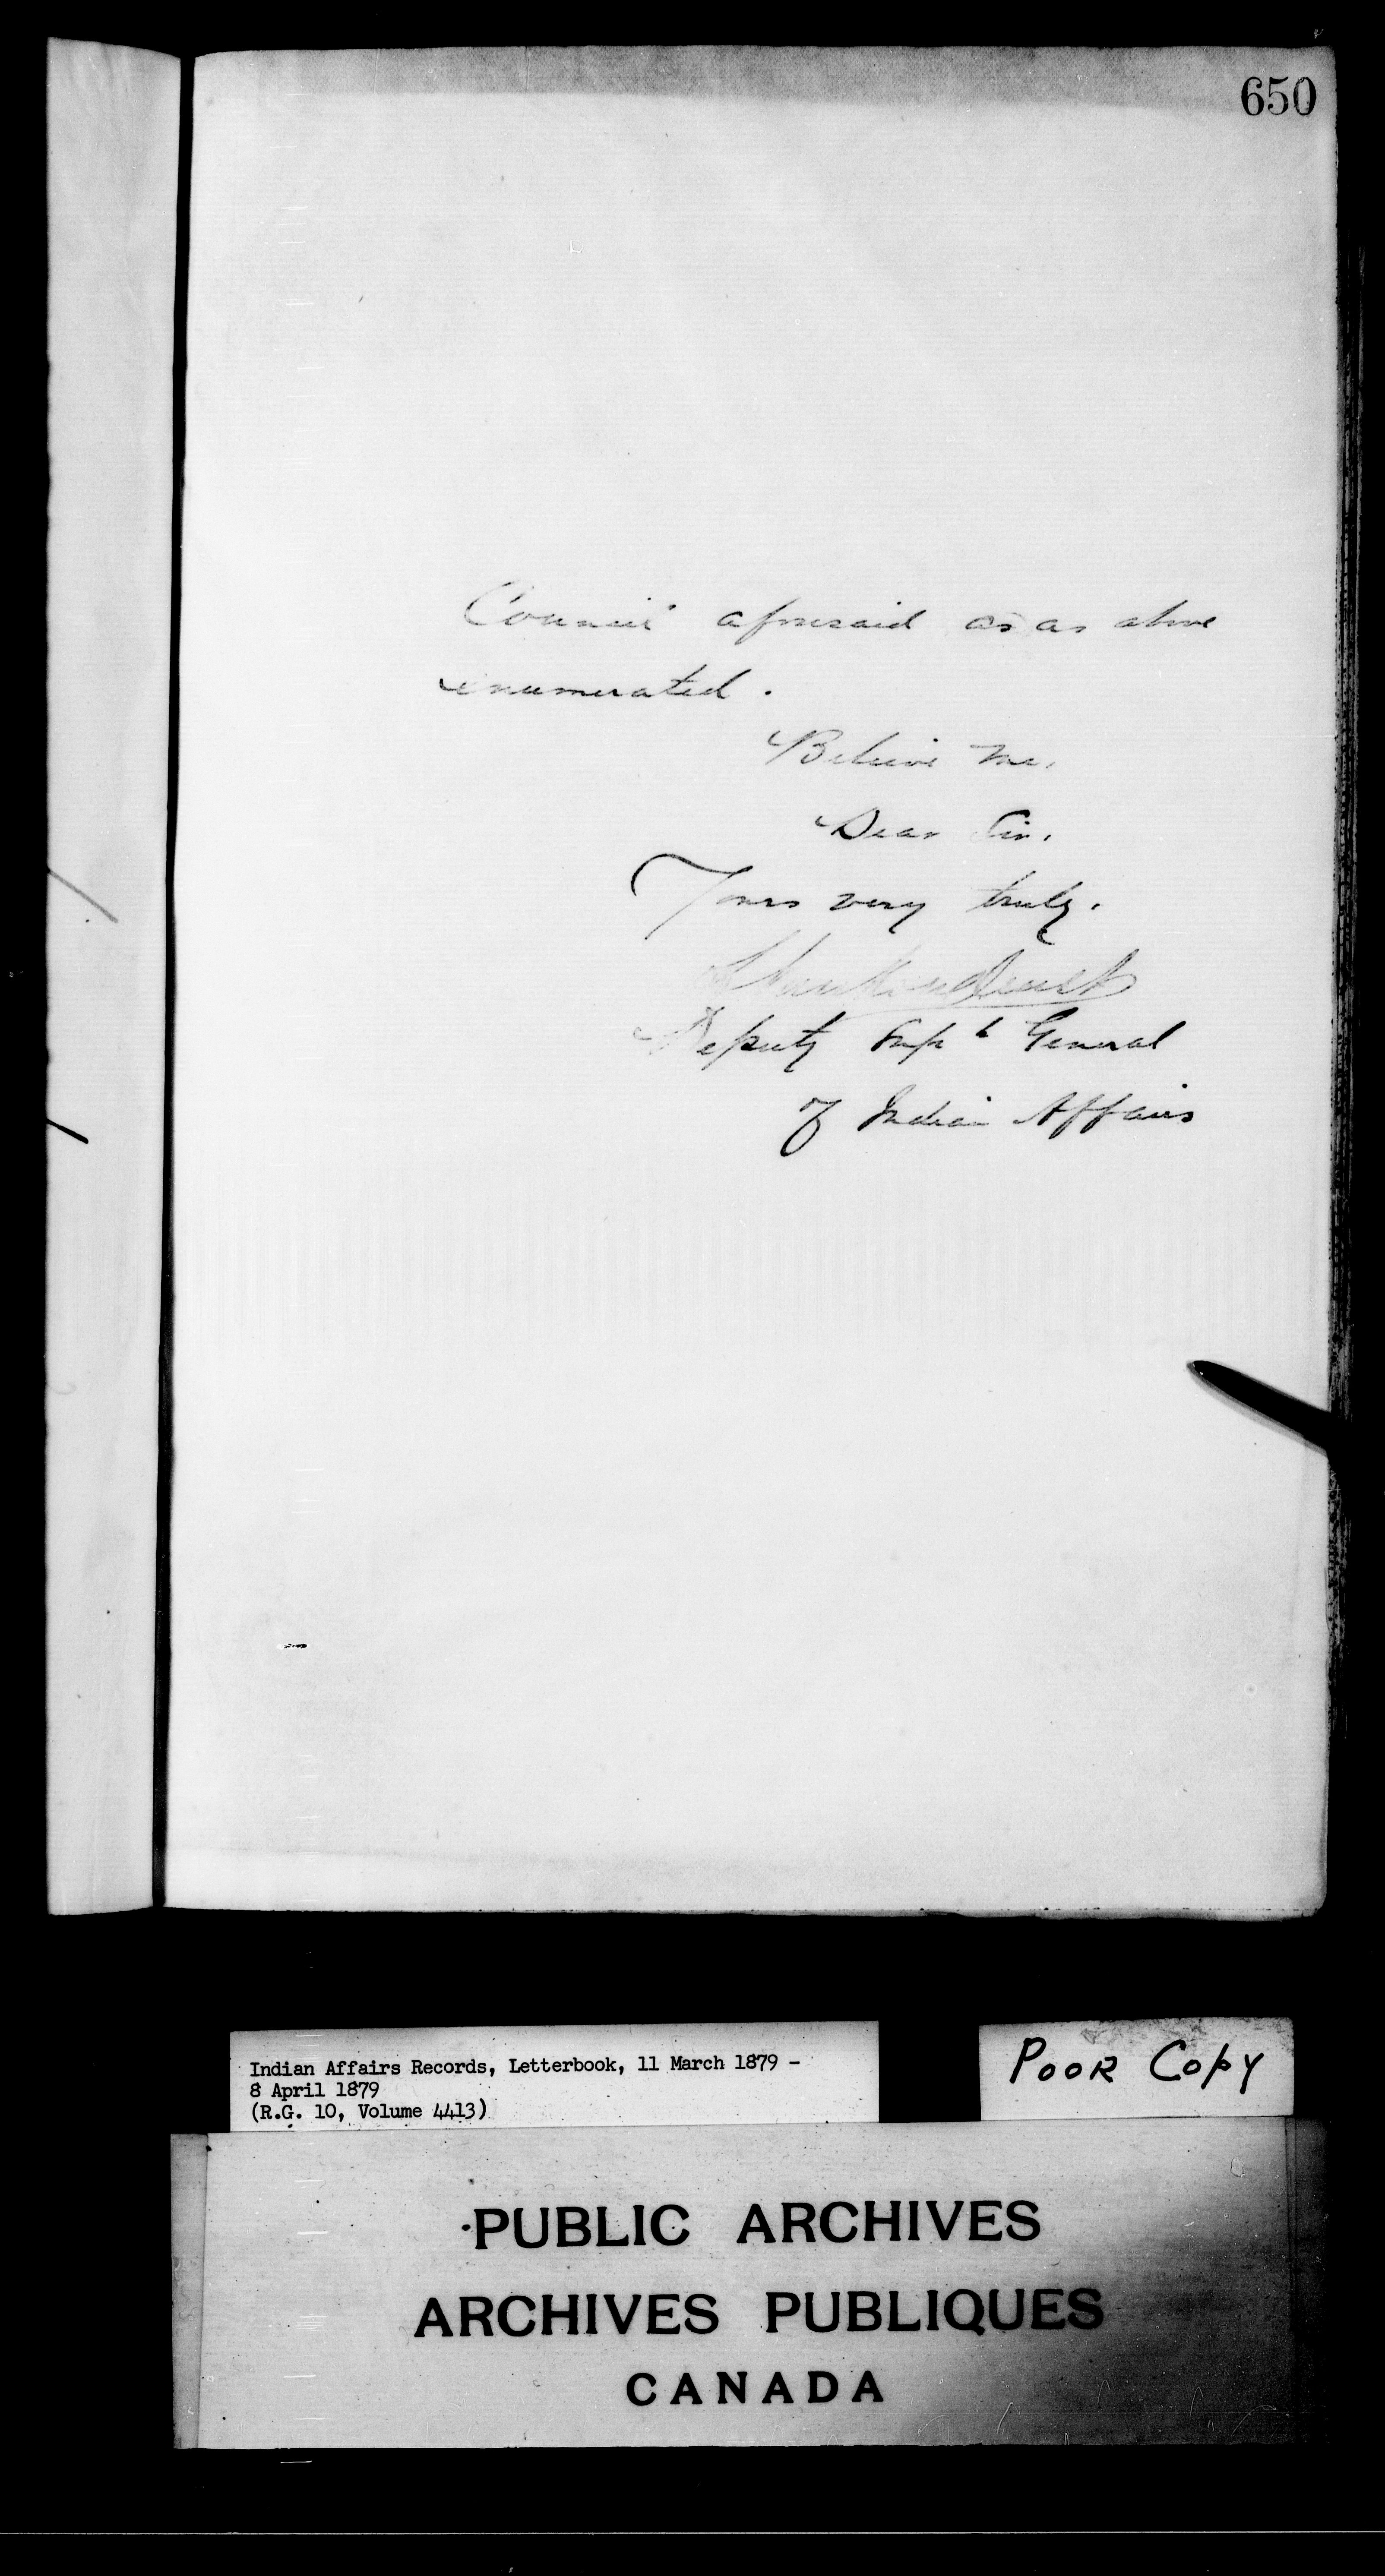 650
Council aforesaid as as above
enumerated.
Believe me,
Dear Sir,
Yours very truly,
L Vankoughnet
Deputy Supt General
of Indian Affairs
Indian Affairs Records, Letterbook, 11 March 1879 -
8 April 1879
(R.G. 10, Volume 4413)
Poor Copy
PUBLIC ARCHIVES
ARCHIVES PUBLIQUES
CANADA